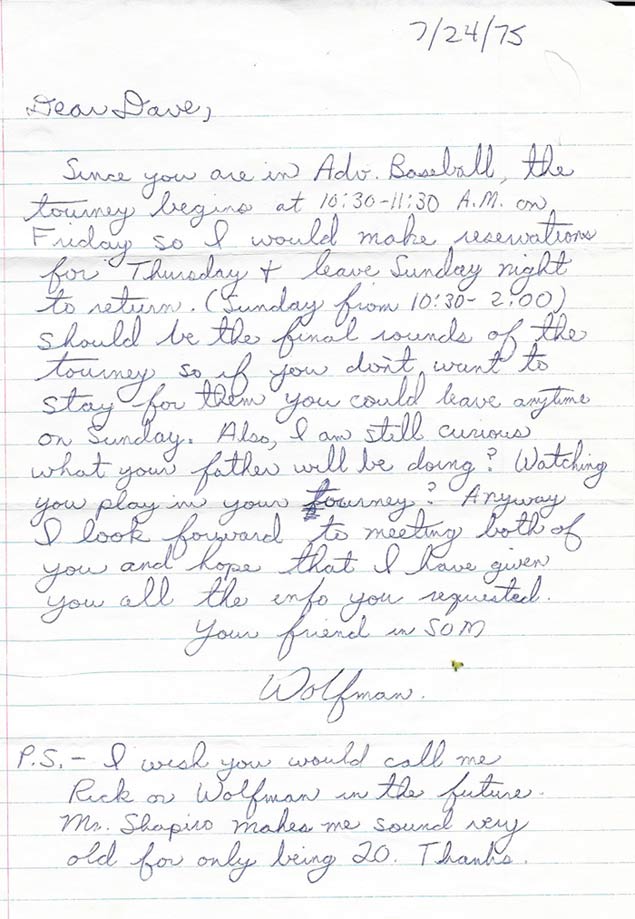 7/24/75
Dear Dave,
Since you are in Adv. Baseball, the
tourney begins at 10:30-11:30 A.M. on
Friday so I would make reservations
for Thursday + leave Sunday night
to return. (Sunday from 10:30-2:00)
should be the final rounds of the
tourney so if you don't want to
stay for them you could leave anytime
on Sunday. Also, I am still curious
what your father will be doing? Watching
you play in your tourney? Anyway
I look forward to meeting both of
you and hope that I have given
you all the info you requested.
Your friend in SOM
Wolfman.
P.S. - I wish you would call me
Rick or Wolfman in the future.
Mr. Shapiro makes me sound very
old for only being 20. Thanks.